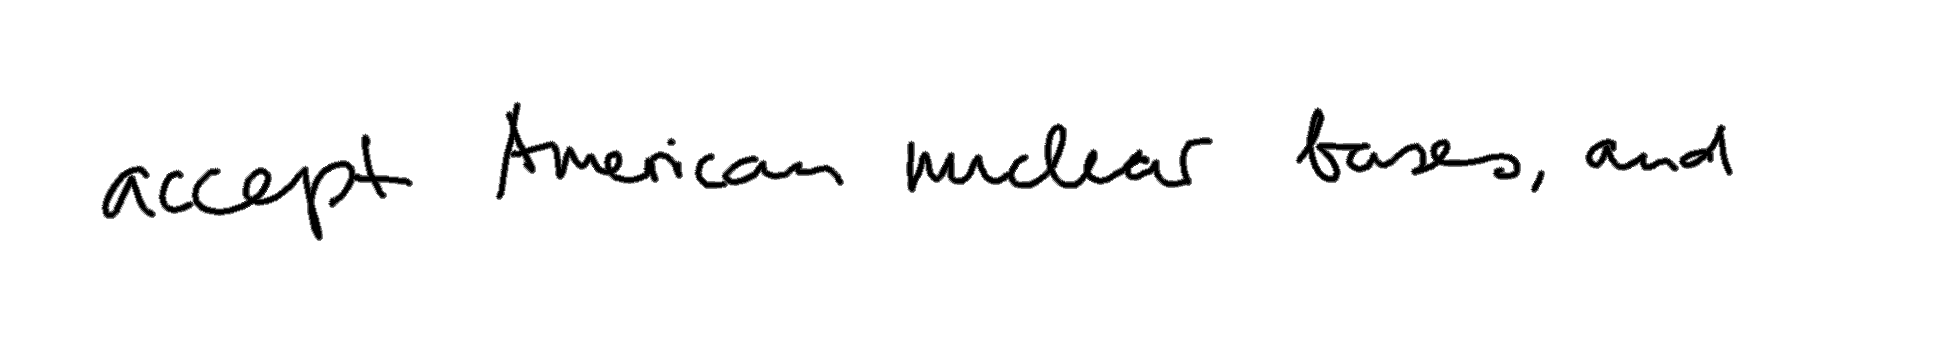 accept American nuclear bases, and